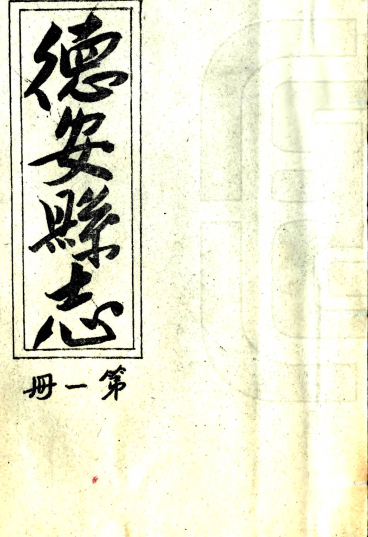 德安縣志
第一冊